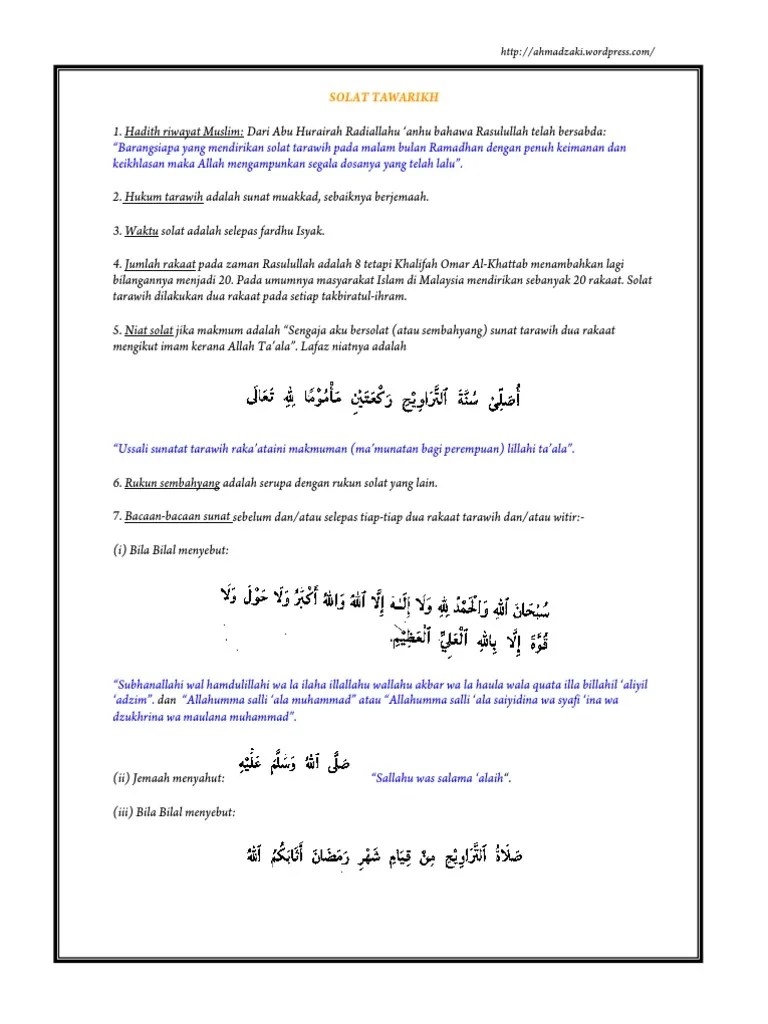 http://ahmadzaki.wordpress.com/
SOLAT TAWARIKH
1. Hadith riwayat Muslim: Dari Abu Hurairah Radiallahu ‘anhu bahawa Rasulullah telah bersabda:
“Barangsiapa yang mendirikan solat tarawih pada malam bulan Ramadhan dengan penuh keimanan dan
keikhlasan maka Allah mengampunkan segala dosanya yang telah lalu”.
2. Hukum tarawih adalah sunat muakkad, sebaiknya berjemaah.
3. Waktu solat adalah selepas fardhu Isyak.
4. Jumlah rakaat pada zaman Rasulullah adalah 8 tetapi Khalifah Omar Al-Khattab menambahkan lagi
bilangannya menjadi 20. Pada umumnya masyarakat Islam di Malaysia mendirikan sebanyak 20 rakaat. Solat
tarawih dilakukan dua rakaat pada setiap takbiratul-ihram.
5. Niat solat jika makmum adalah “Sengaja aku bersolat (atau sembahyang) sunat tarawih dua rakaat
mengikut imam kerana Allah Ta’ala”. Lafaz niatnya adalah
أُصَلِّيْ سُنَّةَ ٱلتَّرَاوِيْحِ رَكْعَتَيْنِ مَأْمُوْمًا لِلّٰهِ تَعَالَى
“Ussali sunatat tarawih raka’ataini makmuman (ma’munatan bagi perempuan) lillahi ta’ala”.
6. Rukun sembahyang adalah serupa dengan rukun solat yang lain.
7. Bacaan-bacaan sunat sebelum dan/atau selepas tiap-tiap dua rakaat tarawih dan/atau witir:-
(i) Bila Bilal menyebut:
سُبْحَانَ ٱللّٰهِ وَٱلْحَمْدُ لِلّٰهِ وَلَا إِلٰـهَ إِلَّا ٱللّٰهُ وَٱللّٰهُ أَكْبَرُ وَلَا حَوْلَ وَلَا
قُوَّةَ إِلَّا بِٱللّٰهِ ٱلْعَلِيِّ ٱلْعَظِيْمِ.
“Subhanallahi wal hamdulillahi wa la ilaha illallahu wallahu akbar wa la haula wala quata illa billahil ‘aliyil
‘adzim”. dan “Allahumma salli ‘ala muhammad” atau “Allahumma salli ‘ala saiyidina wa syafi ‘ina wa
dzukhrina wa maulana muhammad”.
(ii) Jemaah menyahut: صَلَّى ٱللّٰهُ وَسَلَّمَ عَلَيْهِ “Sallahu was salama ‘alaih“.
(iii) Bila Bilal menyebut:
صَلَاةُ ٱلتَّرَاوِيْحِ مِنْ قِيَامِ شَهْرِ رَمَضَانَ أَثَابَكُمُ ٱللّٰهُ